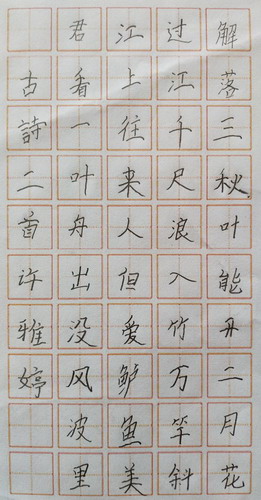 解落三秋叶能开二月花
过江千尺浪入竹万竿斜
江上往来人但爱鲈鱼美
君看一叶舟出没风波里
古詩二首许雅婷